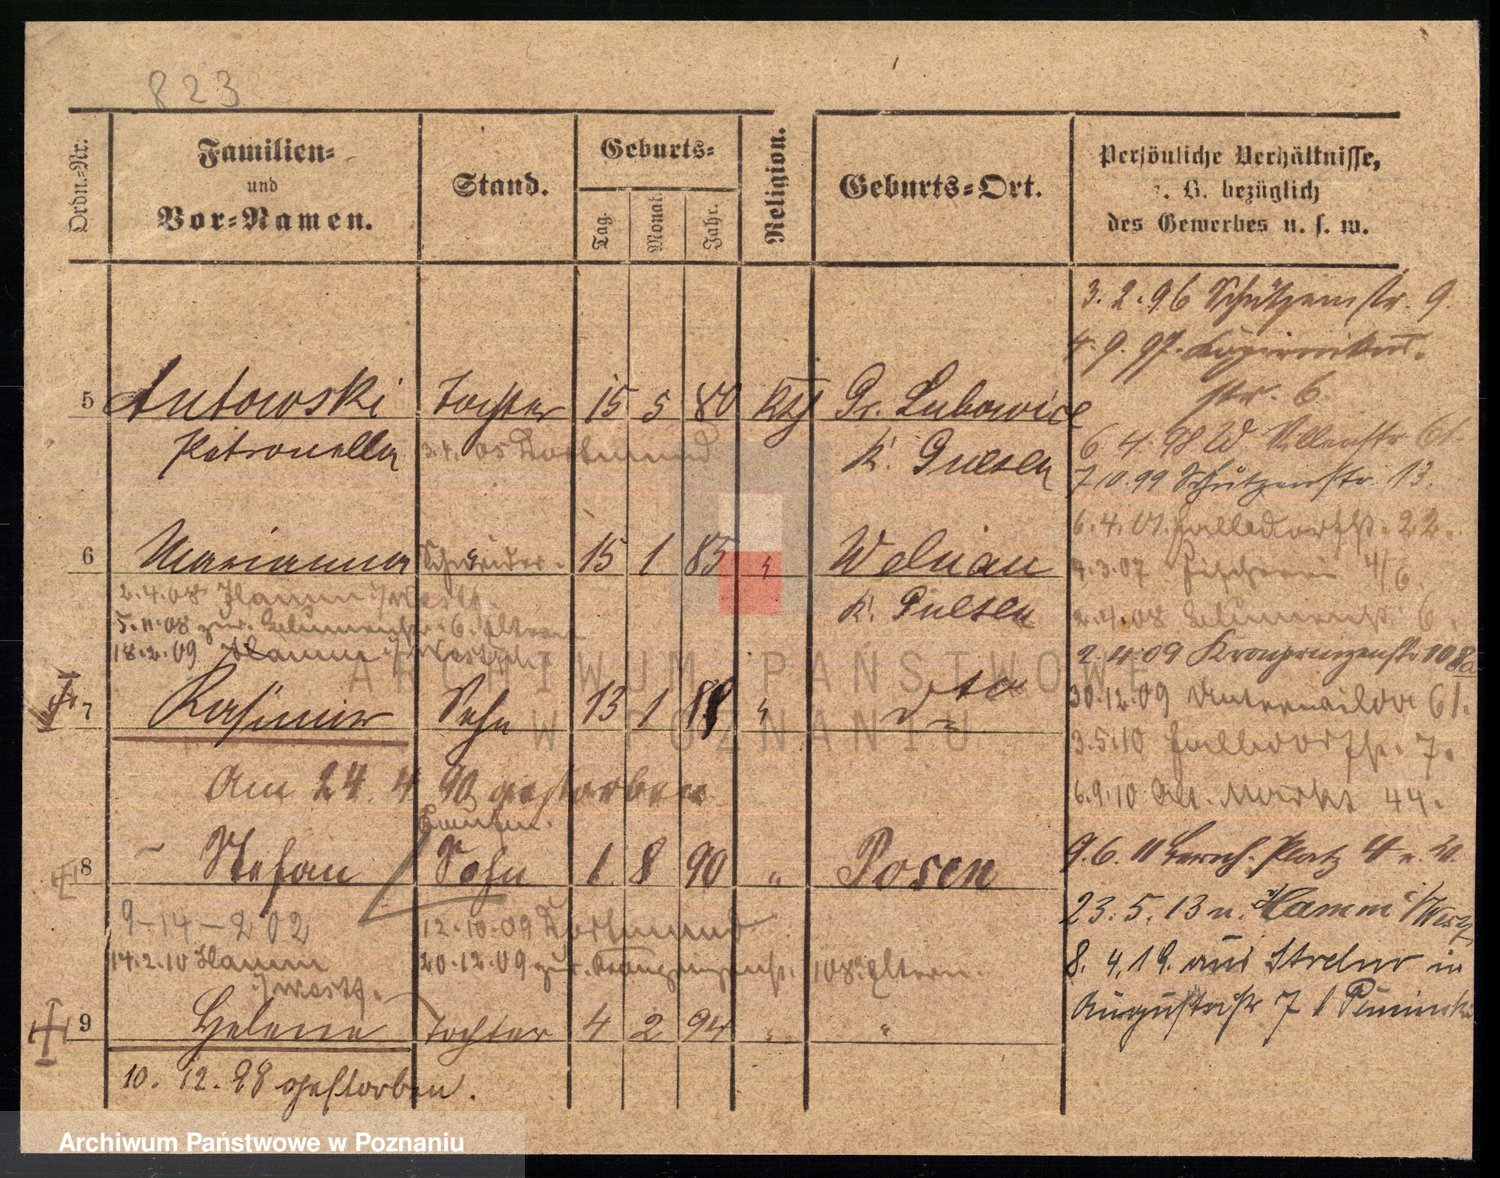 823
Ordn.-Nr.
Familien-
und
Vor-Namen.
Stand.
Geburts-
Tag.
Monat
Jahr.
Religion.
Geburts-Ort.
Persönliche Verhältnisse,
z. B. bezüglich
des Gewerbes u. s. w.
3. 2. 96 Schützenstr. 9.
4. 9. 97.
str. 6.
5 Antowski Tochter 15 5 80 Kth Gr. Lubowice
Petronella 3.4.05 Dortmund K. Gnesen
6. 4. 98 W 61.
7.10.99 Schützenstr. 13.
6.4.01. Halbdorfstr. 22.
6 Marianna Schneider. 15 1 85 " Welnau
K. Gnesen
4.3.07 Fischerei 4/6
2.4.08 Hamm i/Westf.
5.11.08 zur. 6. Eltern
18.2.09 Hamm i/Westf.
2.4.08 6.
2.4.09 Kronprinzenstr. 108a
7 Kasimir Sohn 13 1 88 " dto
30.12.09 Unterwilda 61.
3.5.10 Halbdorfstr. 7.
Am 24. 4. 90 gestorben
6.9.10 Alt. Markt 44.
8 - Stefan Sohn 1 8 90 " Posen
9.6.11 Bernh. Platz 4
9-14-202
12.10.09 Dortmund
14.2.10 Hamm
i/Westf.
20.12.09 zur. Kronprinzenstr. 108a Eltern.
23. 5. 13 n. Hamm i/Westf
8. 4. 19. aus Strelno in
Augustastr 7 b
9 Helene Tochter 4 2 94 " "
10. 12. 98 gestorben.
ARCHIWUM PAŃSTWOWE
W POZNANIU
Archiwum Państwowe w Poznaniu